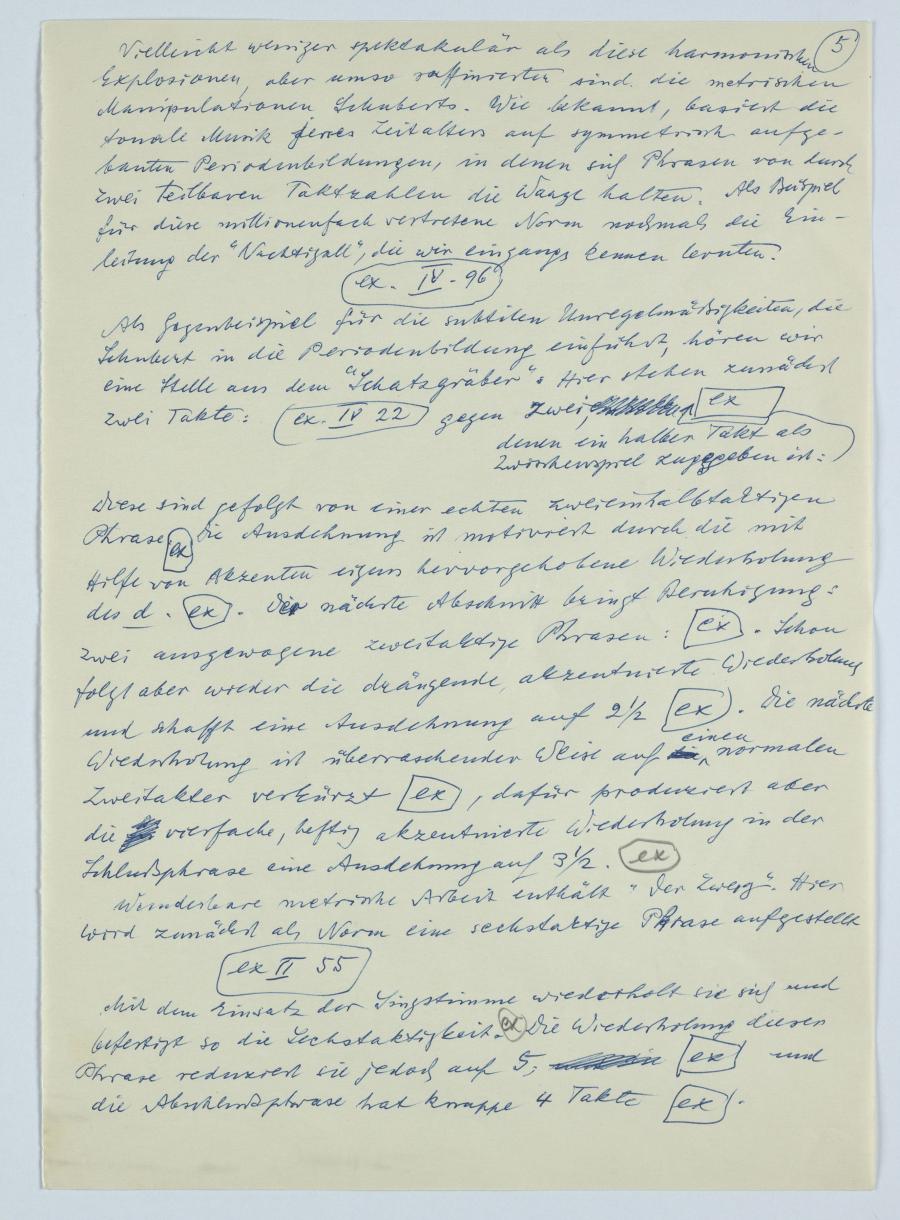 5
Vielleicht weniger spektakulär als diese harmonischen
Explosionen, aber umso raffinierter sind die metrischen
Manipulationen Schuberts. Wie bekannt, basiert die
tonale Musik jenes Zeitalters auf symmetrisch aufge-
bauten Periodenbildungen, in denen sich Phrasen von durch
zwei teilbaren Taktzahlen die Waage halten. Als Beispiel
für diese millionenfach vertretene Norm nochmals die Ein-
leitung der "Nachtigall", die wir eingangs kennen lernten.
ex. IV - 96
Als Gegenbeispiel für die subtilen Unregelmäßigkeiten, die
Schubert in die Periodenbildung einführt, hören wir
eine Stelle aus dem "Schatzgräber": Hier stehen zunächst
zwei Takte: ex. IV 22 gegen zwei, ex
denen ein halber Takt als
Zwischenspiel zugegeben ist:
Diese sind gefolgt von einer echten zweieinhalbtaktigen
Phrase ex Die Ausdehnung ist motiviert durch die mit
Hilfe von Akzenten eigens hervorgehobene Wiederholung
des d. ex. Der nächste Abschnitt bringt Beruhigung:
zwei ausgewogene zweitaktige Phrasen: ex. Schon
folgt aber wieder die drängende, akzentuierte Wiederholung
und schafft eine Ausdehnung auf 2 1/2 ex. Die nächste
Wiederholung ist überraschender Weise auf einen normalen
Zweitakter verkürzt ex, dafür produziert aber
die vierfache, heftig akzentuierte Wiederholung in der
Schlußphrase eine Ausdehnung auf 3 1/2. ex
Wunderbare metrische Arbeit enthält "Der Zwerg". Hier
wird zunächst als Norm eine sechstaktige Phrase aufgestellt
ex II 55
Mit dem Einsatz der Singstimme wiederholt sie sich und
befestigt so die Sechstaktigkeit. ex Die Wiederholung dieser
Phrase reduziert sie jedoch auf 5; ex und
die Abschlußphrase hat knappe 4 Takte ex.